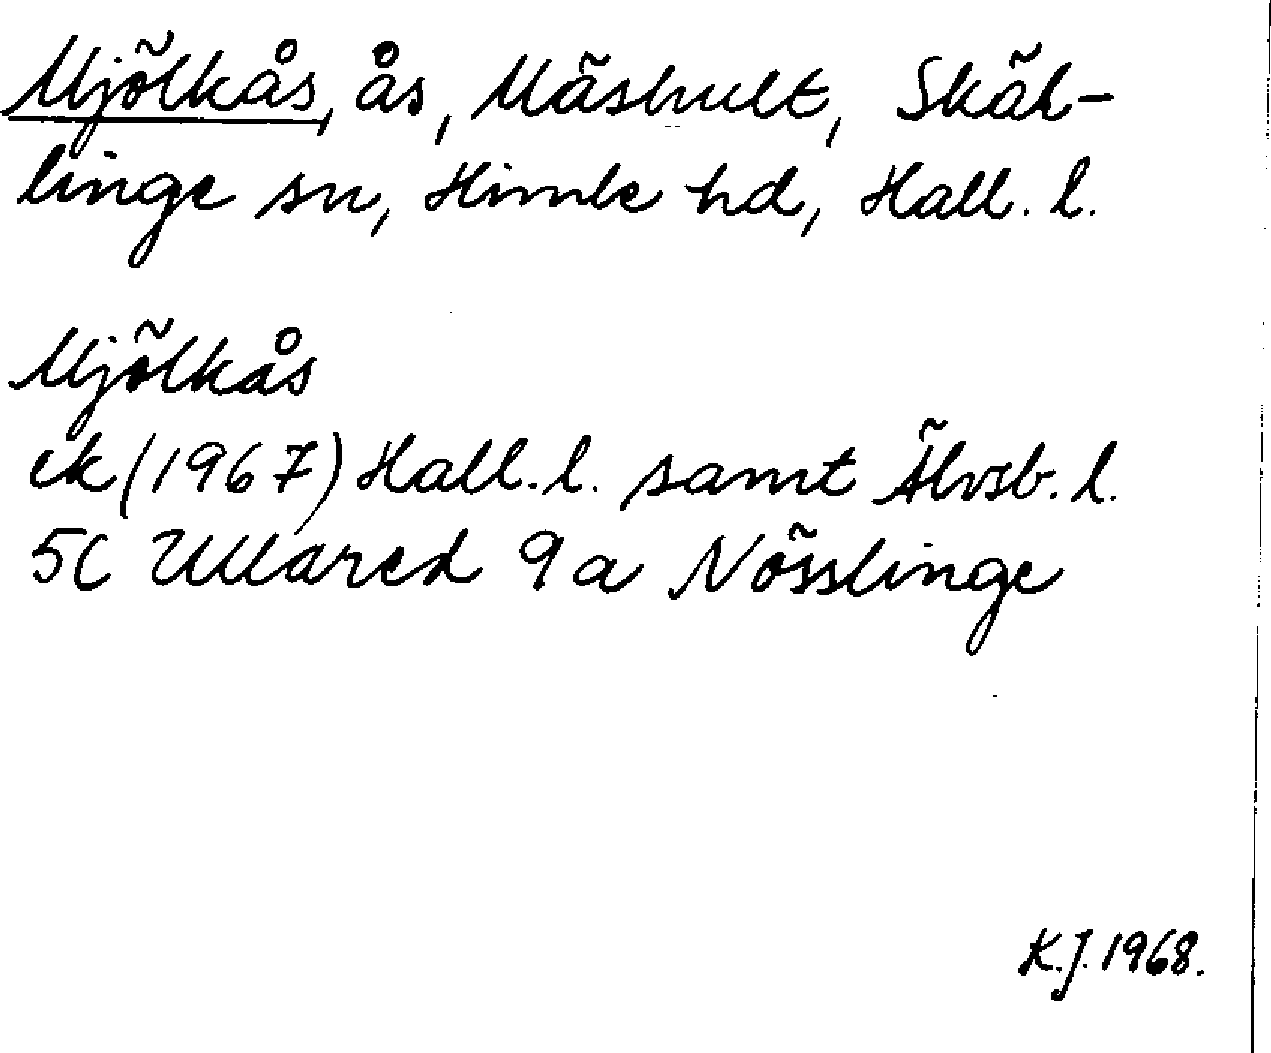 Mjölkås, ås, Mäshult, Skäl-
linge sn, Himle hd, Hall. l.
Mjölkås
ek (1967) Hall. l. samt Älvsb. l.
5C Ullared 9a Nösslinge
K.J. 1968.